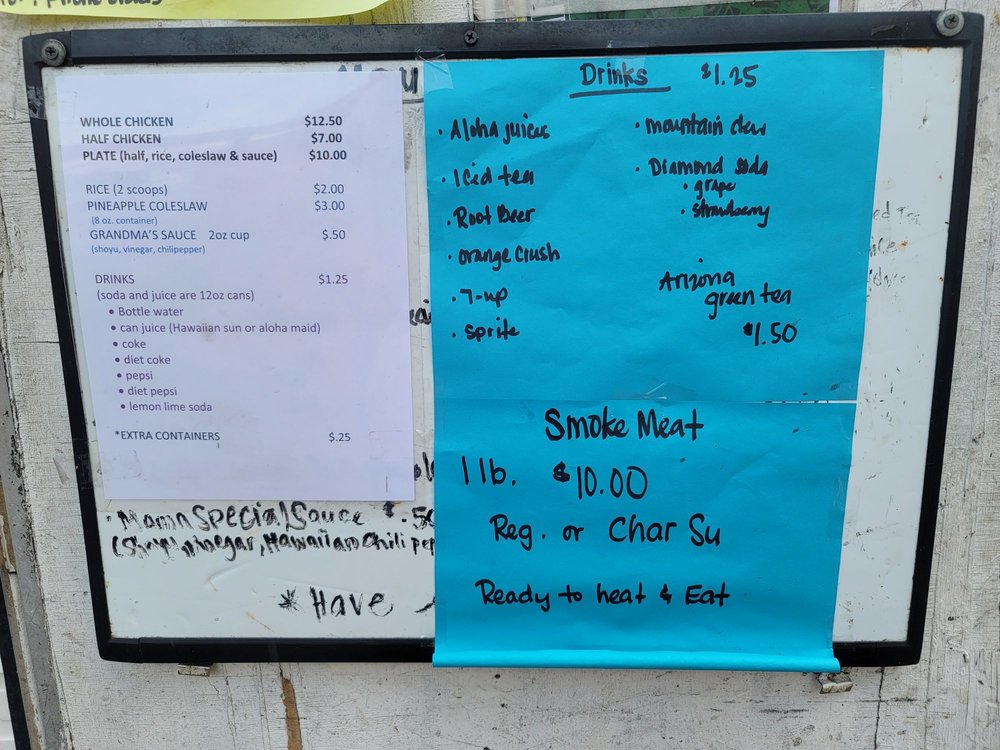 WHOLE CHICKEN $12.50
HALF CHICKEN $7.00
PLATE (half, rice, coleslaw & sauce) $10.00
RICE (2 scoops) $2.00
PINEAPPLE COLESLAW $3.00
(8 oz. container)
GRANDMA'S SAUCE 2oz cup $.50
(shoyu, vinegar, chilipepper)
DRINKS $1.25
(soda and juice are 12oz cans)
• Bottle water
• can juice (Hawaiian sun or aloha maid)
• coke
• diet coke
• pepsi
• diet pepsi
• lemon lime soda
*EXTRA CONTAINERS $.25
• Mama Special Sauce $.50
(Shoyu, vinegar, Hawaiian Chili pep
* Have
Drinks $1.25
• Aloha juices
• Iced tea
• Root Beer
• orange crush
• 7-up
• sprite
• mountain dew
• Diamond soda
• grape
• strawberry
Arizona
green tea
$1.50
Smoke Meat
1 lb. $10.00
Reg. or Char Su
Ready to heat & Eat